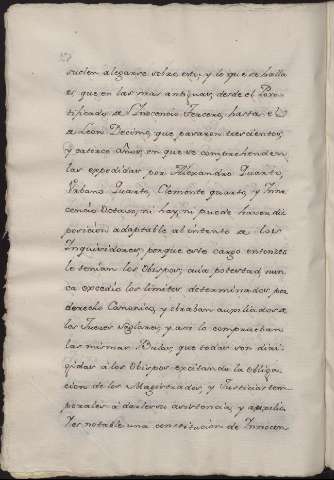 suelen alegarse sobre esto; y lo que se halla
es, que en las mas antiguas, desde el Pon-
tificado de Ynocencio Tercero, hasta el
de Leon Decimo, que pasaron trescientos,
y catorce años, en que se comprehenden
las expedidas, por Alexandro Quarto,
Urbano Quarto, Clemente quarto, y Yno-
cencio Octavo, ni hay, ni puede haver dis-
posicion adaptable al intento de los
Ynquisidores, porque este cargo entonces
le tenian los Obispos, cuia potestad nun-
ca excedio los limites determinados, por
derecho Canonico, y estaban auxiliados de
los Jueces seglares, y asi lo comprueban
las mismas Bulas, que todas son diri-
gidas á los Obispos excitando la obliga-
cion de los Magistrados, y Justicias tem-
porales á darles su asistencia, y auxilio.
Y es notable una constitucion de Ynnocen